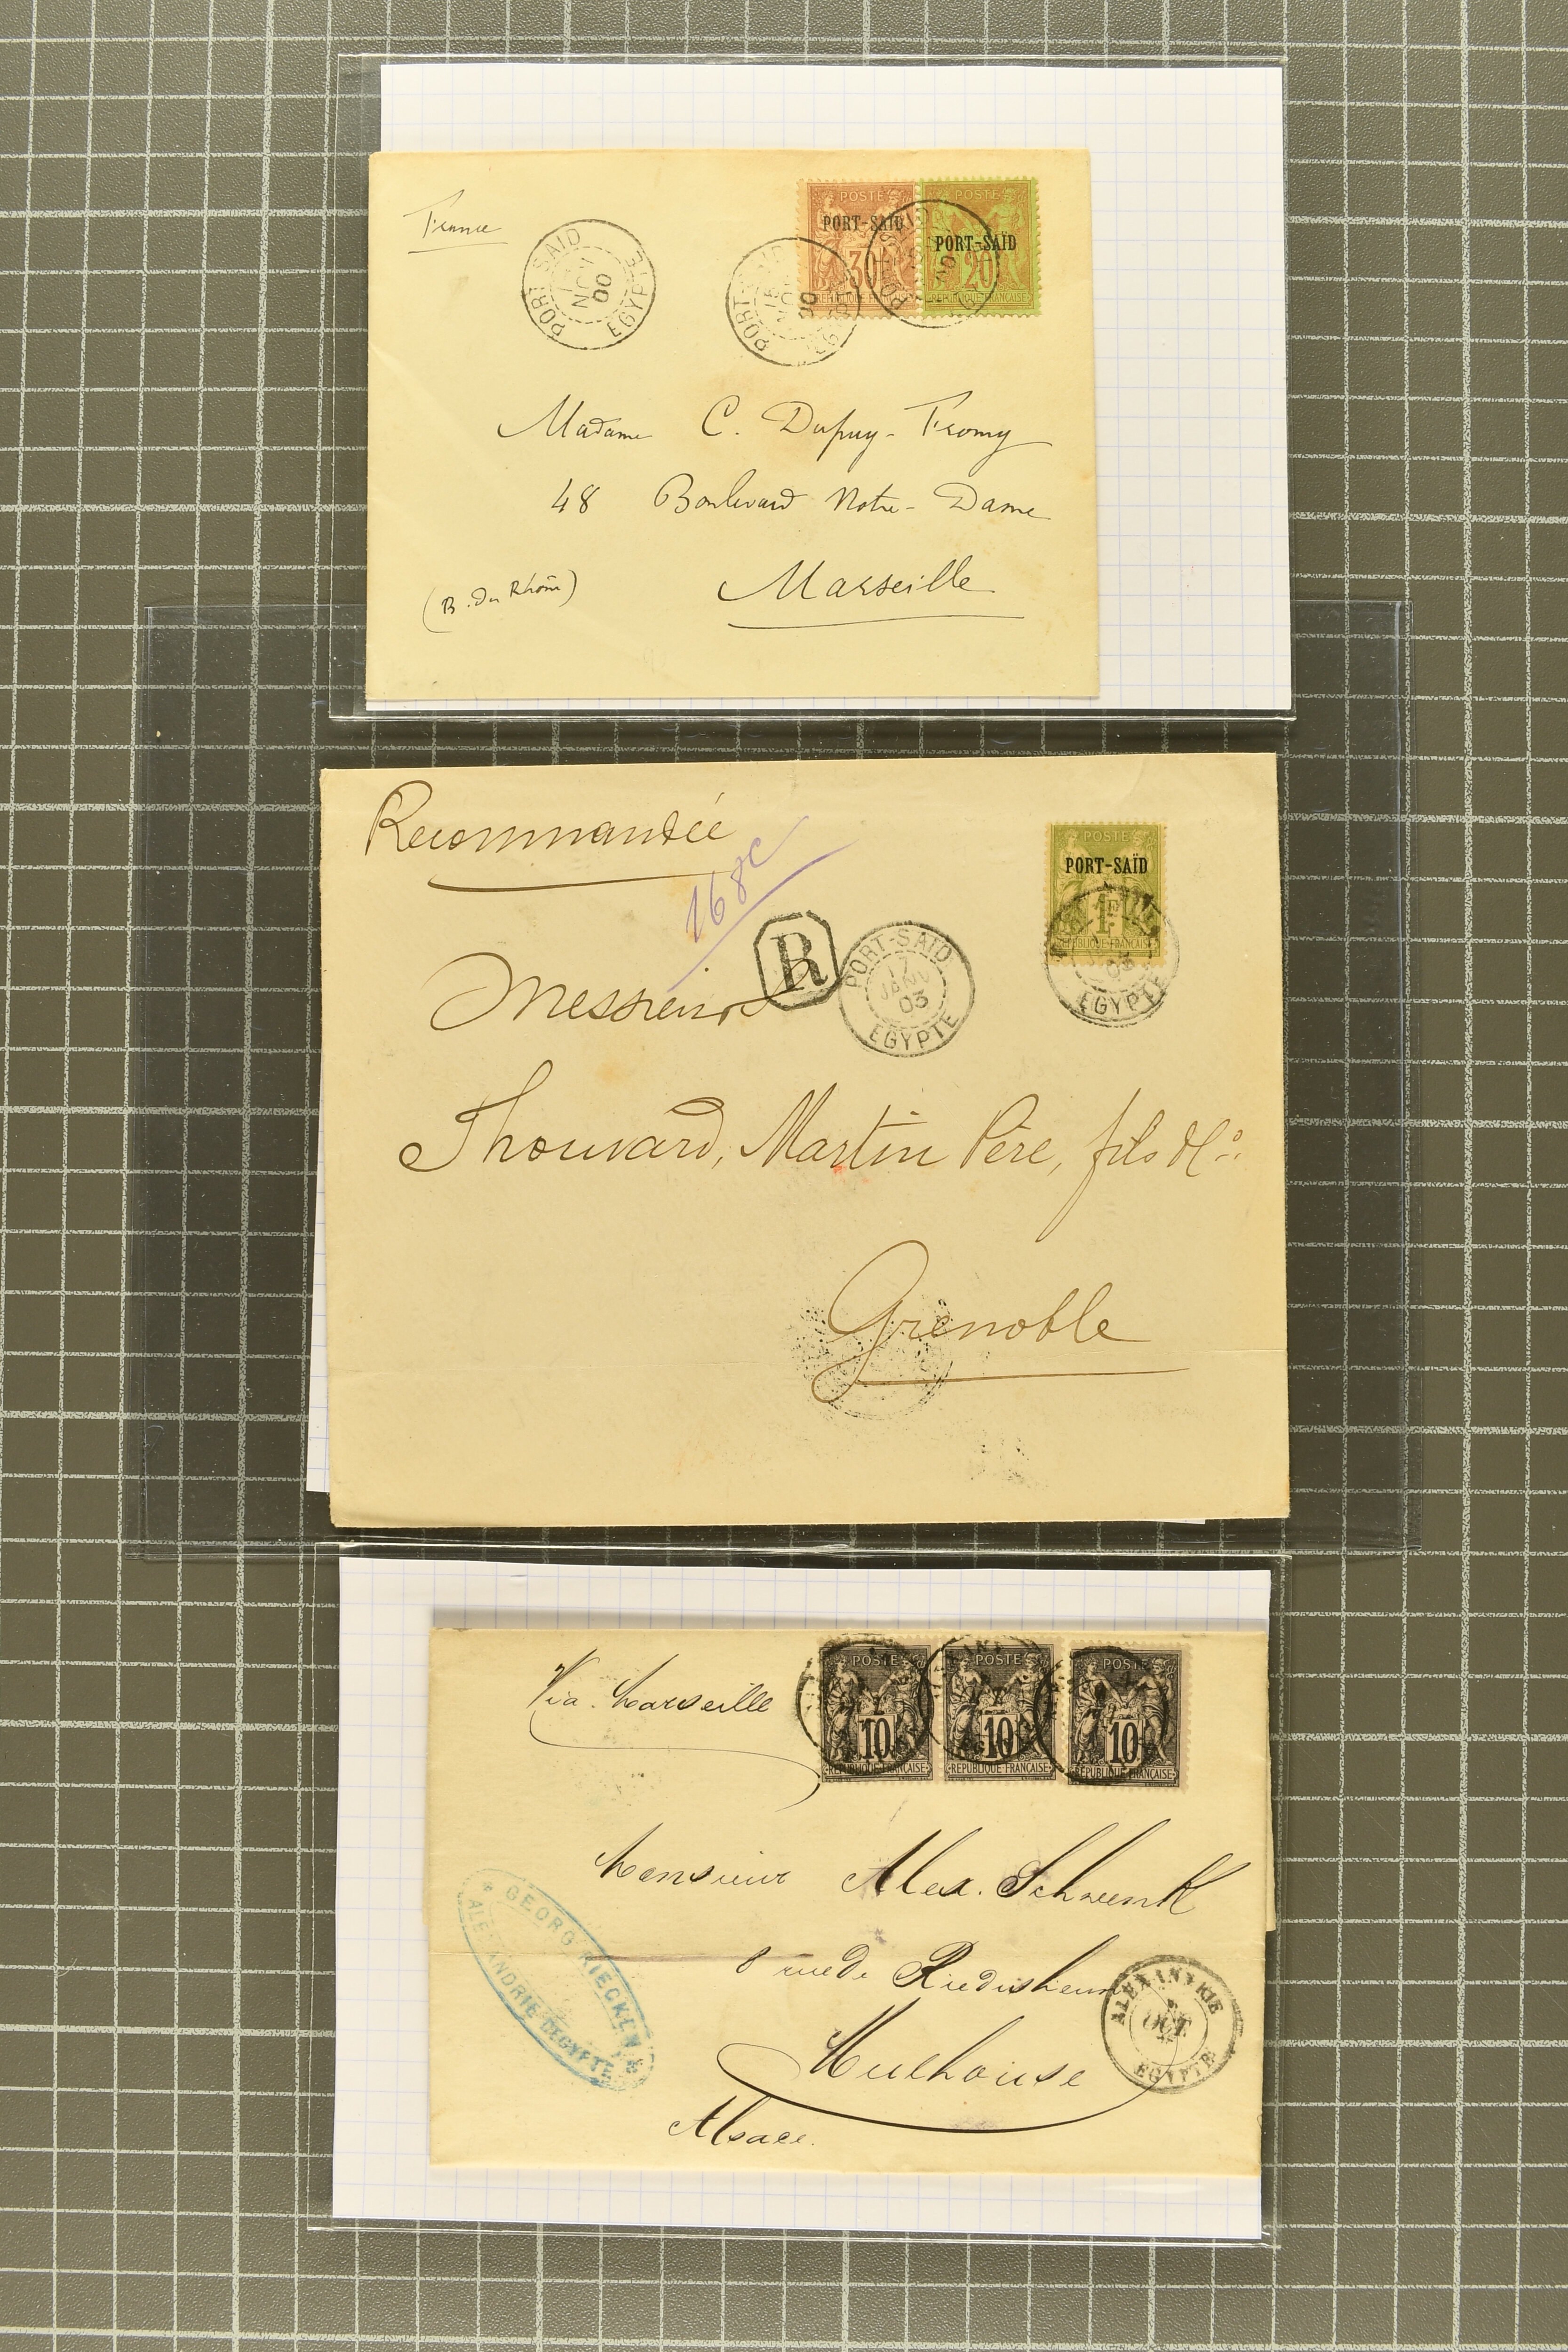 France
PORT SAID
NOV
00
EGYPTE
POSTE
PORT-SAÏD
30
REPUBLIQUE FRANCAISE
POSTE
PORT-SAÏD
20
REPUBLIQUE FRANCAISE
PORT SAID
00
Madame C. Dupuy-Fromy
48 Boulevard Notre-Dame
(B. du Rhône)
Marseille
Recommandée
168
R
PORT-SAID
17
JANV
03
EGYPTE
POSTE
PORT-SAÏD
1F
REPUBLIQUE FRANCAISE
03
EGYPTE
Messieurs
Thouvard, Martin Père, fils & Co
Grenoble
Via Marseille
POSTE
10
REPUBLIQUE FRANCAISE
POSTE
10
REPUBLIQUE FRANCAISE
POSTE
10
REPUBLIQUE FRANCAISE
Monsieur Alex. Schwenk
8 rue de Riedisheim
Mulhouse
Alsace.
GEORG RIECKEN
ALEXANDRIE D'EGYPTE
ALEXANDRIE
OCT
EGYPTE